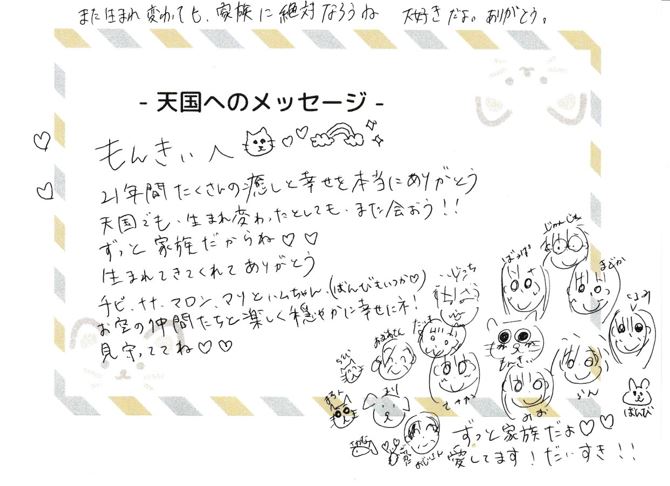 また生まれ変わっても、家族に絶対なろうね 大好きだよ。ありがとう。
- 天国へのメッセージ -
もんきぃへ
21年間たくさんの癒しと幸せを本当にありがとう
天国でも、生まれ変わったとしても、また会おう!!
ずっと家族だからね♡♡
生まれてきてくれてありがとう
チビ、ナナ、マロン、マリとハムちゃん、(ばんびもいつか♡)
お空の仲間たちと楽しく穏やかに幸せにネ!
見守っててね♡♡
まどか
もんきぃ
みお
ばんび
まろん
まり
ずっと家族だよ♡♡
愛してます!だいすき!!